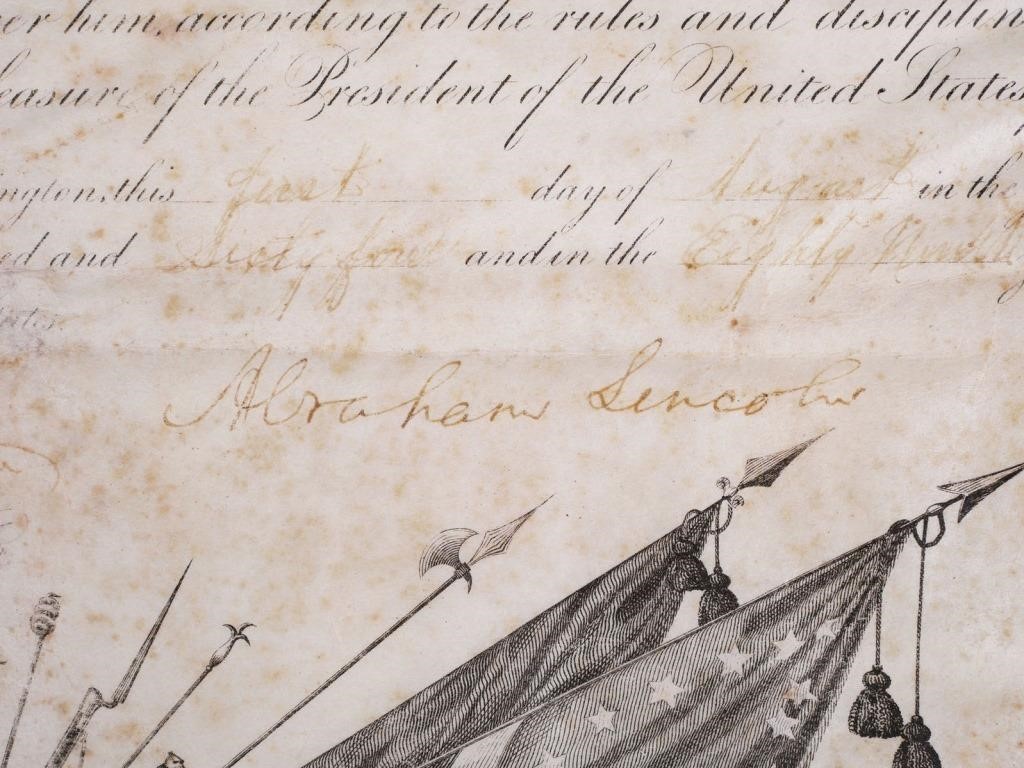 er him, according to the rules and disciplin
leasure of the President of the United States
ington, this first day of August in the
ed and Sixty four and in the Eighty Ninth
tates.
Abraham Lincoln